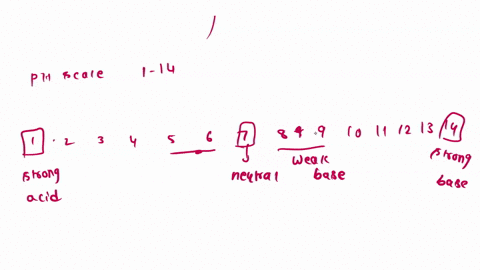 PH scale 1-14
1 2 3 4 5 6 7 8 9 .9 10 11 12 13 14
strong acid neutral weak base strong base